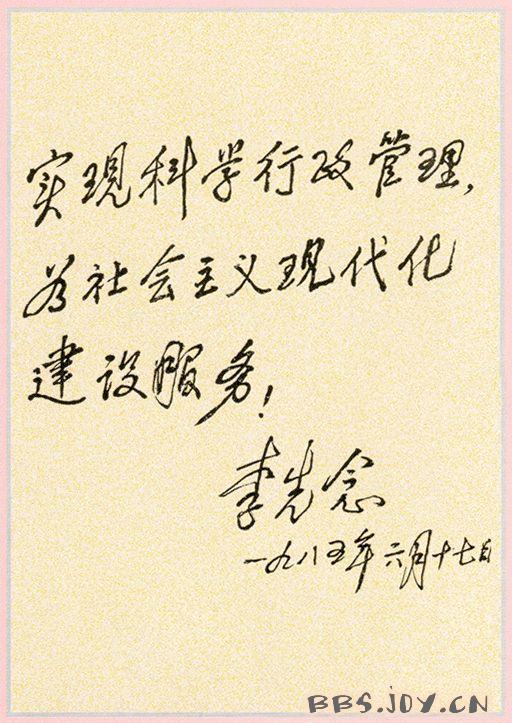 实现科学行政管理，
为社会主义现代化
建设服务！
李先念
一九八五年六月十七日
BBS.JOY.CN